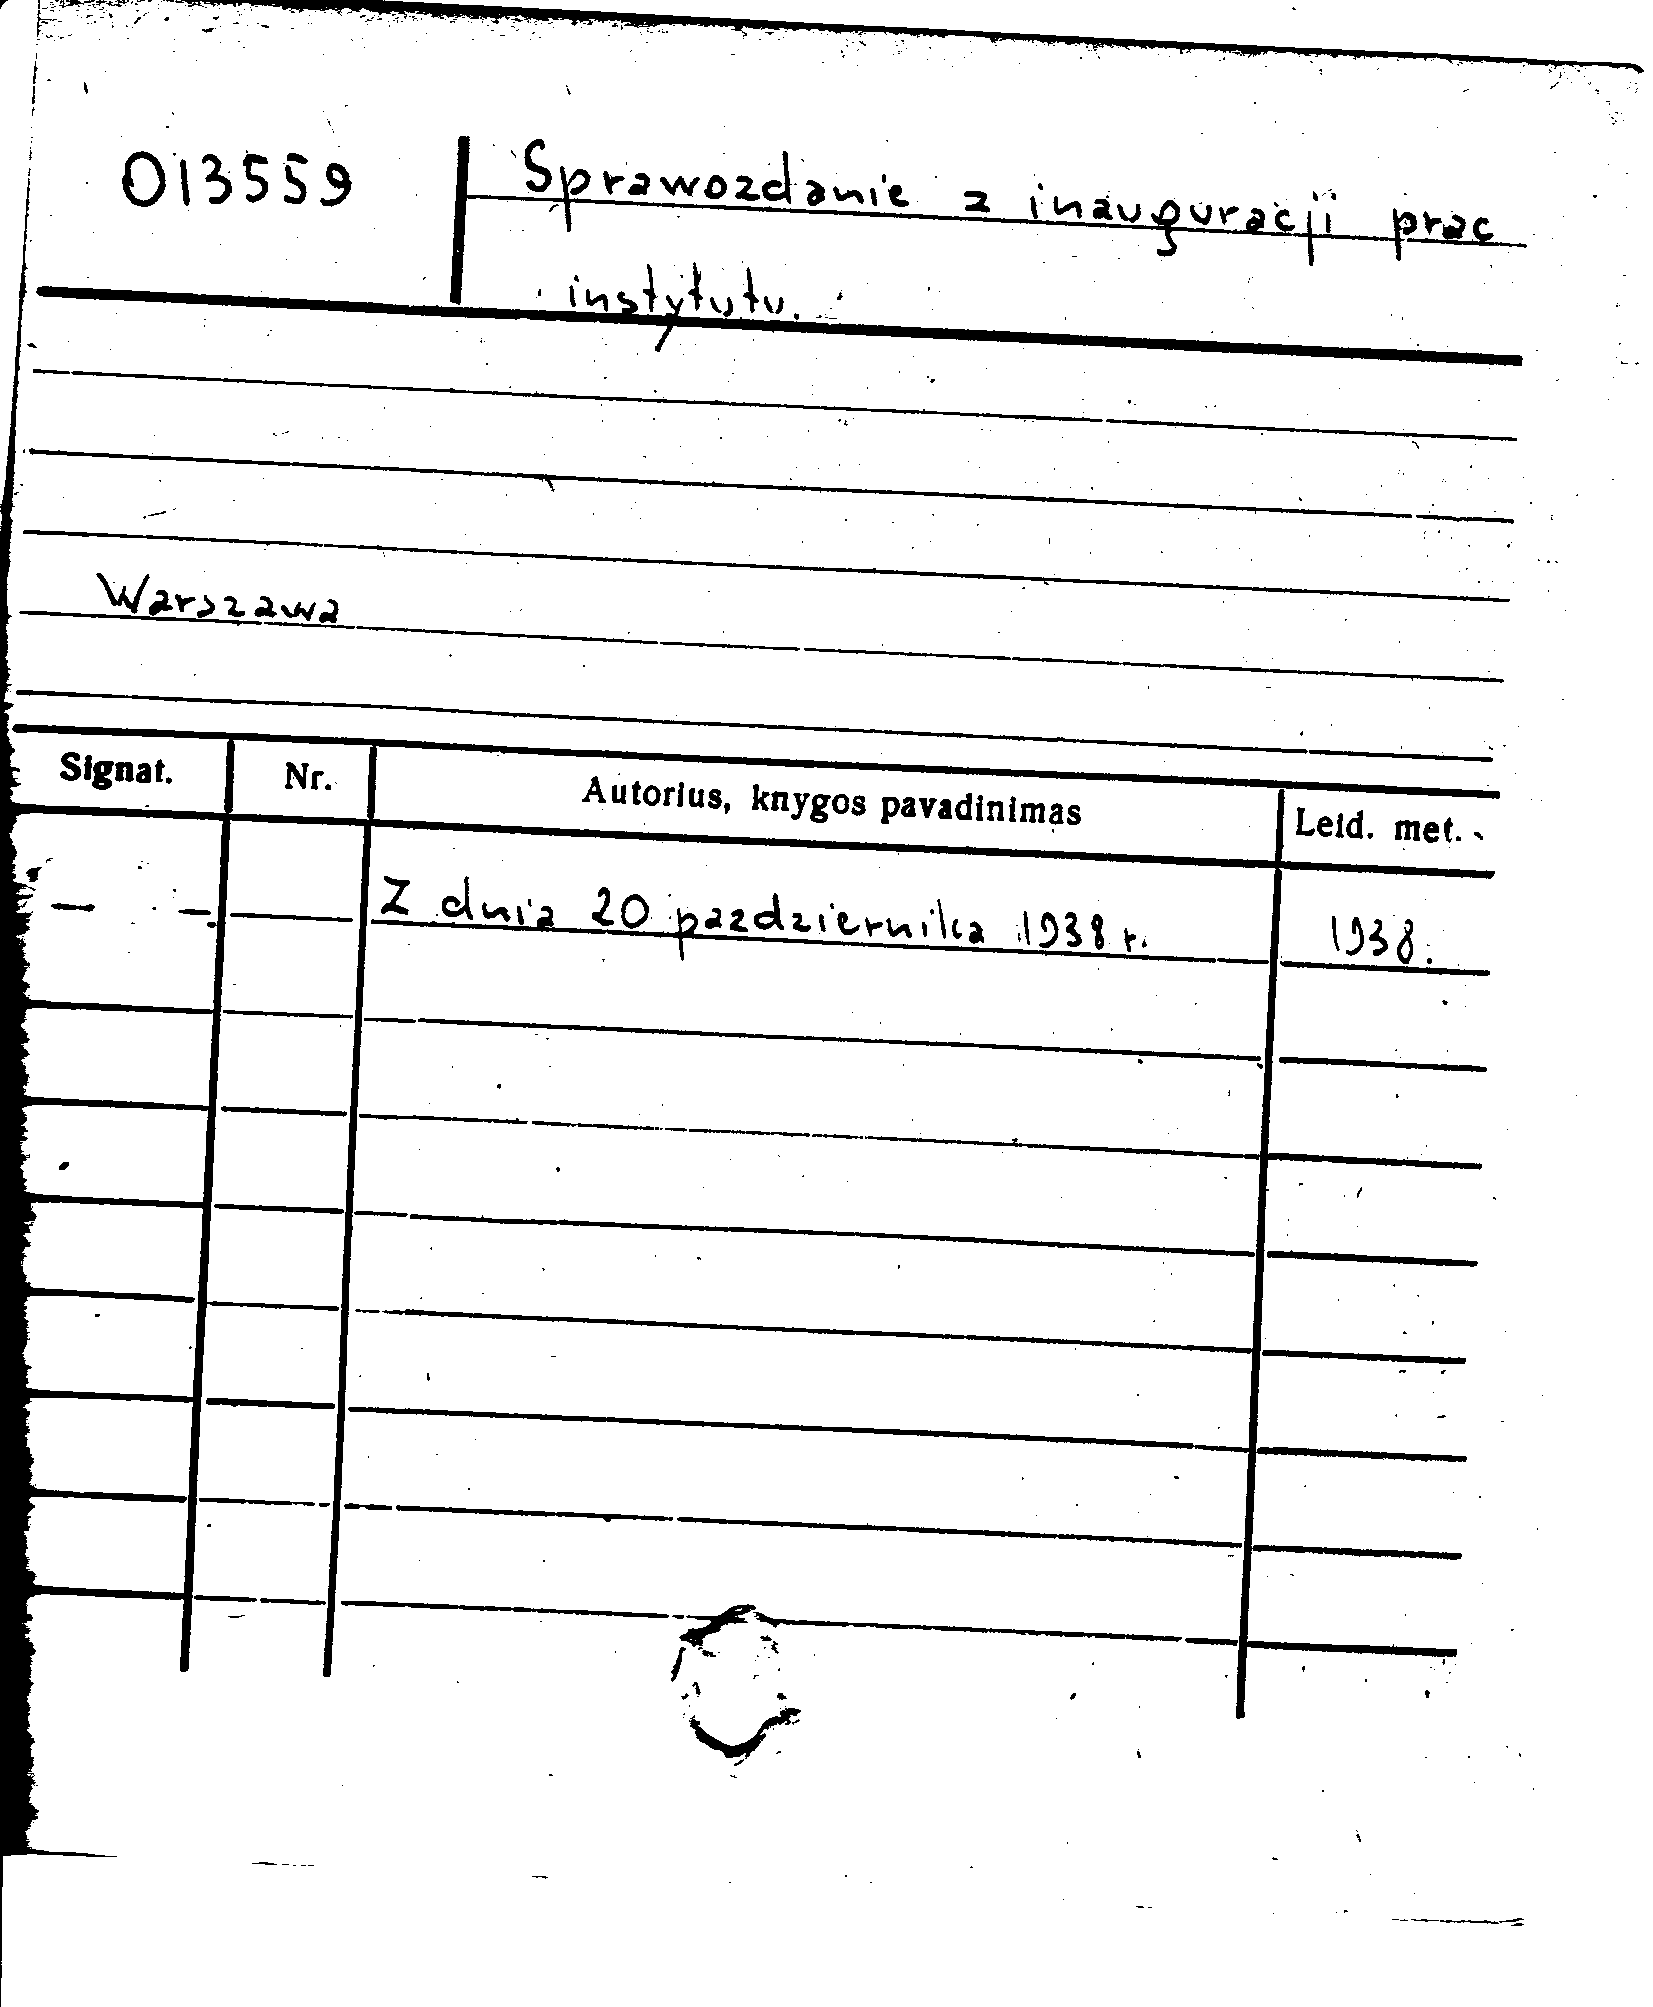 013559
Sprawozdanie z inauguracji prac
instytutu.
Warszawa
Signat. Nr. Autorius, knygos pavadinimas Leid. met.
— - Z dnia 20 pazdziernika 1938 r. 1938.